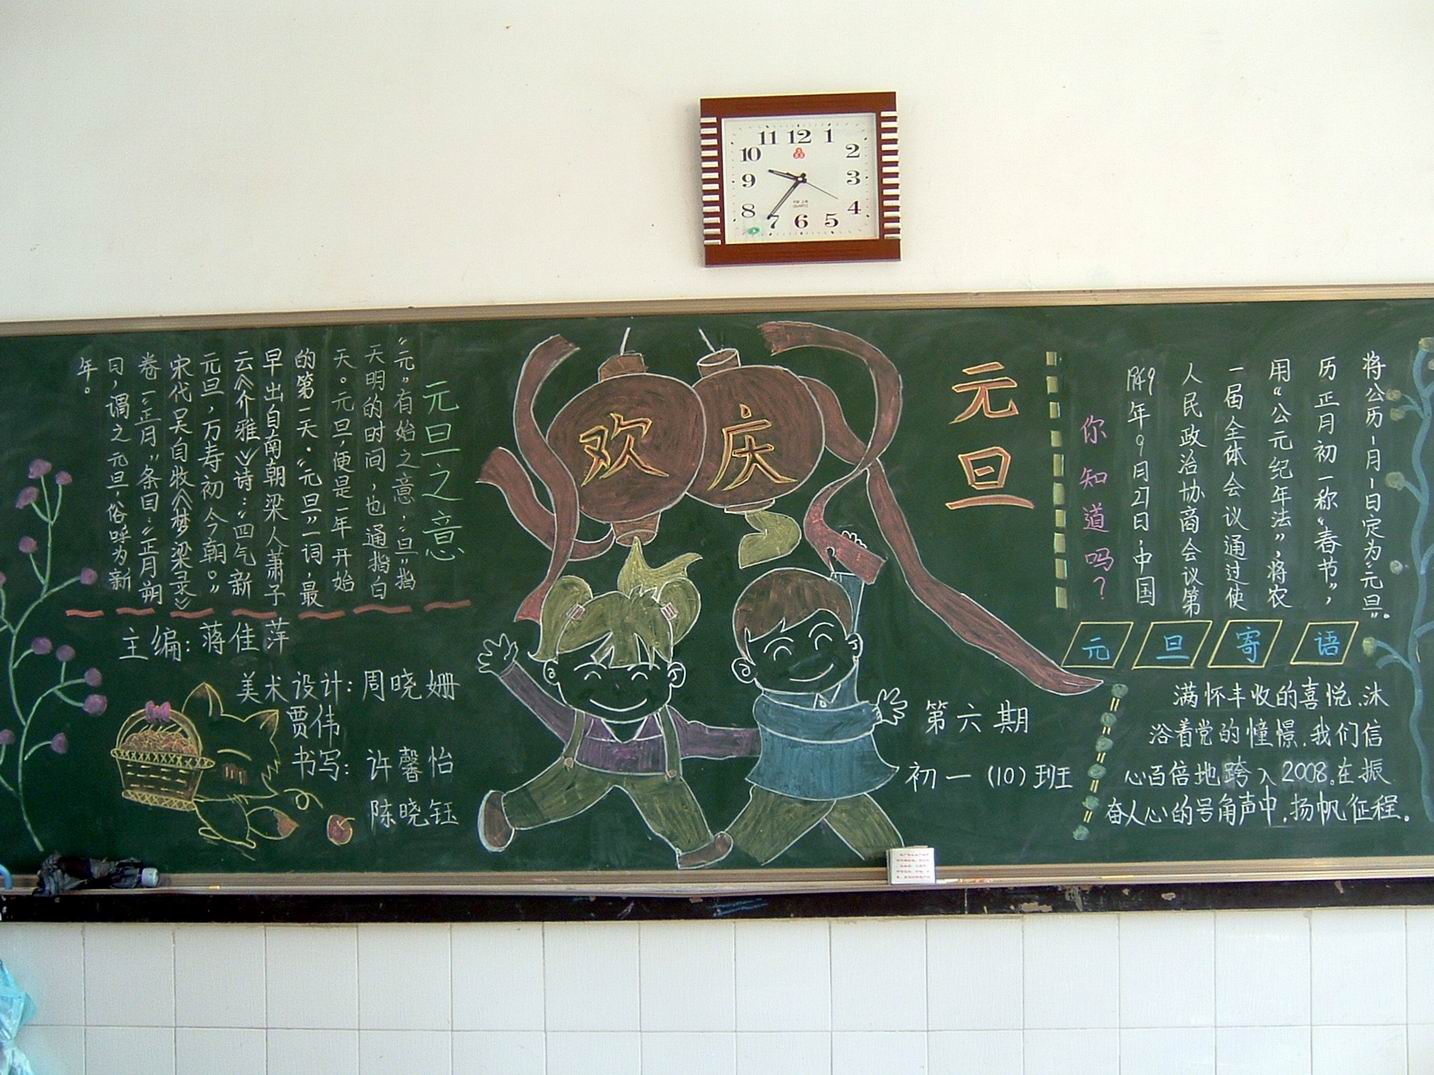 11 12 1
10 2
9 3
8 4
7 6 5
欢庆
元旦
元旦之意
“元”有始之意，“旦”指
天明的时间，也通指白
天。元旦，便是一年开始
的第一天。“元旦”一词，最
早出自南朝梁人萧子
云《介雅》诗：“四气新
元旦，万寿初今朝。”
宋代吴自牧《梦梁录》
卷一“正月”条曰：“正月朔
日，谓之元旦，俗呼为新
年。
主编：蒋佳萍
美术设计：周晓姗
贾伟
书写：许馨怡
陈晓钰
第六期
初一（10）班
你知道吗？
1949年9月27日，中国
人民政治协商会议第
一届全体会议通过使
用“公元纪年法”，将农
历正月初一称“春节”，
将公历一月一日定为“元旦”。
元旦寄语
满怀丰收的喜悦，沐
浴着党的憧憬，我们信
心百倍地跨入2008。在振
奋人心的号角声中，扬帆征程。